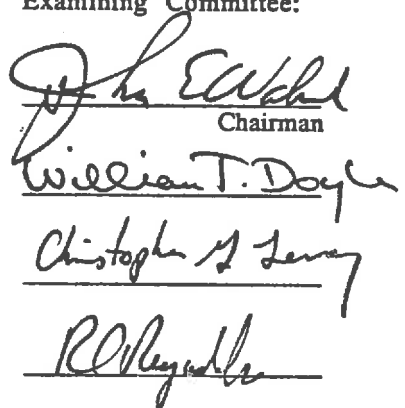 Examining Committee:
John E Walsh
Chairman
William T. Doyle
Christopher G Levey